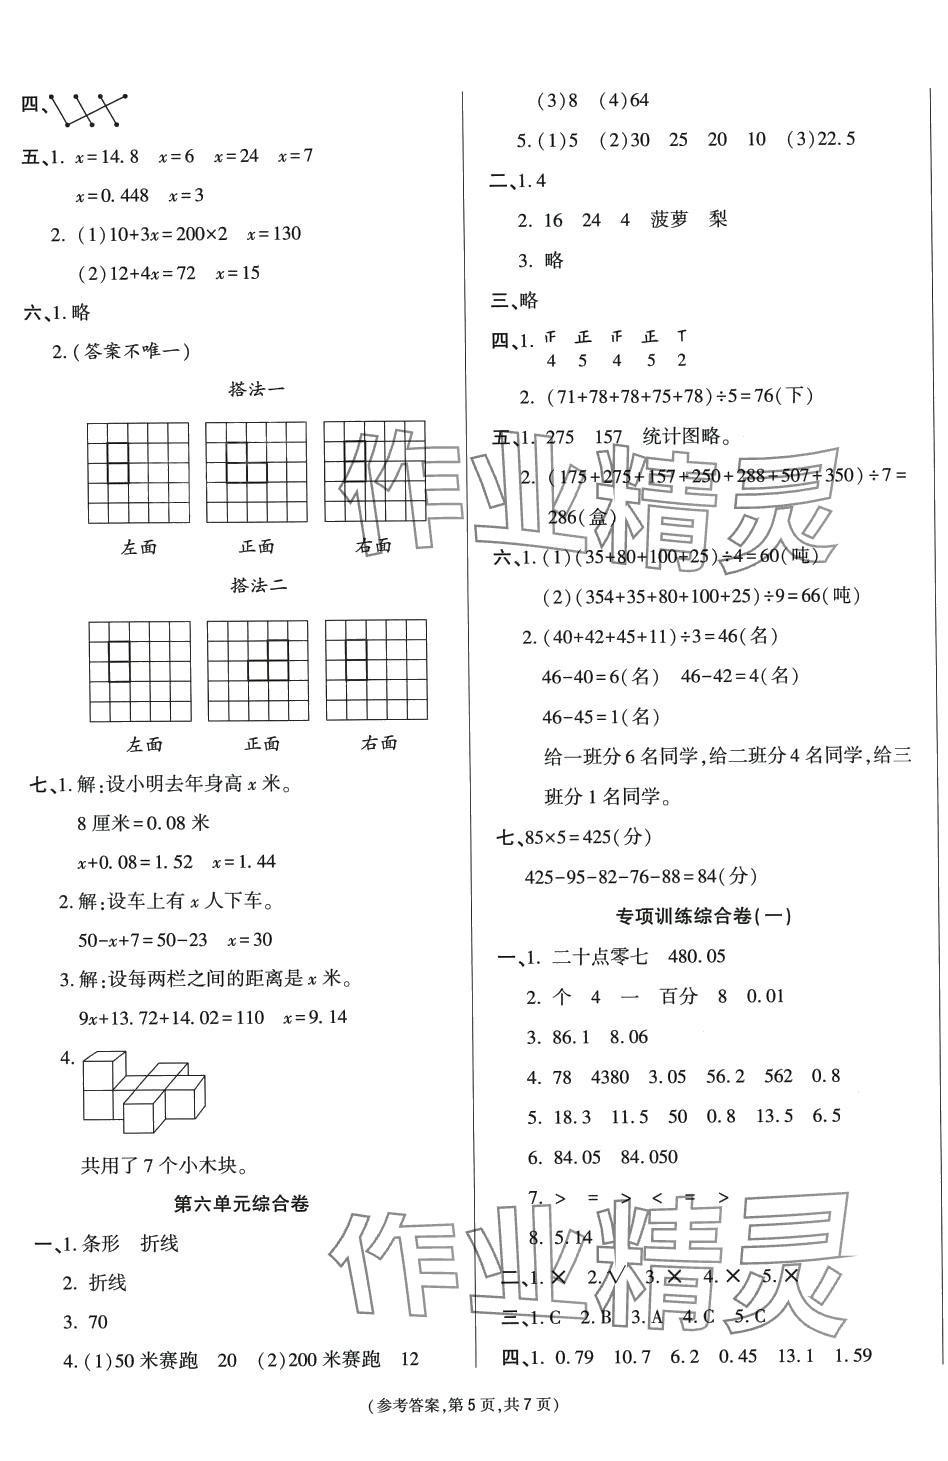 四、
五、1. x=14.8 x=6 x=24 x=7
x=0.448 x=3
2. (1)10+3x=200×2 x=130
(2)12+4x=72 x=15
六、1. 略
2. (答案不唯一)
搭法一
左面 正面 右面
搭法二
左面 正面 右面
七、1. 解:设小明去年身高 x 米。
8 厘米=0.08 米
x+0.08=1.52 x=1.44
2. 解:设车上有 x 人下车。
50-x+7=50-23 x=30
3. 解:设每两栏之间的距离是 x 米。
9x+13.72+14.02=110 x=9.14
4.
共用了 7 个小木块。
第六单元综合卷
一、1. 条形 折线
2. 折线
3. 70
4. (1)50 米赛跑 20 (2)200 米赛跑 12
(3)8 (4)64
5. (1)5 (2)30 25 20 10 (3)22.5
二、1. 4
2. 16 24 4 菠萝 梨
3. 略
三、略
四、1. 正 正 正 正 丅
4 5 4 5 2
2. (71+78+78+75+78)÷5=76(下)
五、1. 275 157 统计图略。
2. (175+275+157+250+288+507+350)÷7=
286(盒)
六、1. (1)(35+80+100+25)÷4=60(吨)
(2)(354+35+80+100+25)÷9=66(吨)
2. (40+42+45+11)÷3=46(名)
46-40=6(名) 46-42=4(名)
46-45=1(名)
给一班分 6 名同学,给二班分 4 名同学,给三
班分 1 名同学。
七、85×5=425(分)
425-95-82-76-88=84(分)
专项训练综合卷(一)
一、1. 二十点零七 480.05
2. 个 4 一 百分 8 0.01
3. 86.1 8.06
4. 78 4380 3.05 56.2 562 0.8
5. 18.3 11.5 50 0.8 13.5 6.5
6. 84.05 84.050
7. > = > < = >
8. 5.14
二、1. × 2. √ 3. × 4. × 5. ×
三、1. C 2. B 3. A 4. C 5. C
四、1. 0.79 10.7 6.2 0.45 13.1 1.59
(参考答案,第 5 页,共 7 页)
作业精灵
作业精灵